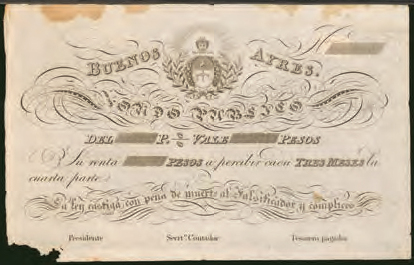 BUENOS AYRES.
FONDO PUBLICO
DEL P. % VALE PESOS
Su renta PESOS a percibir cada TRES MESES la
cuarta parte.
La ley castiga con pena de muerte al Falsificador y complices
Presidente Secrt.º Contador Tesorero pagador